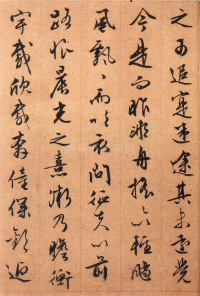 之可追寔迷途其未遠覺
今是而昨非舟搖〻以輕颺
風飄〻而吹衣問征夫以前
路恨晨光之熹微乃瞻衡
宇載欣載奔僮僕歡迎